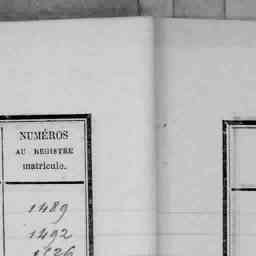 NUMÉROS
AU REGISTRE
matricule.
1489
1492
1526